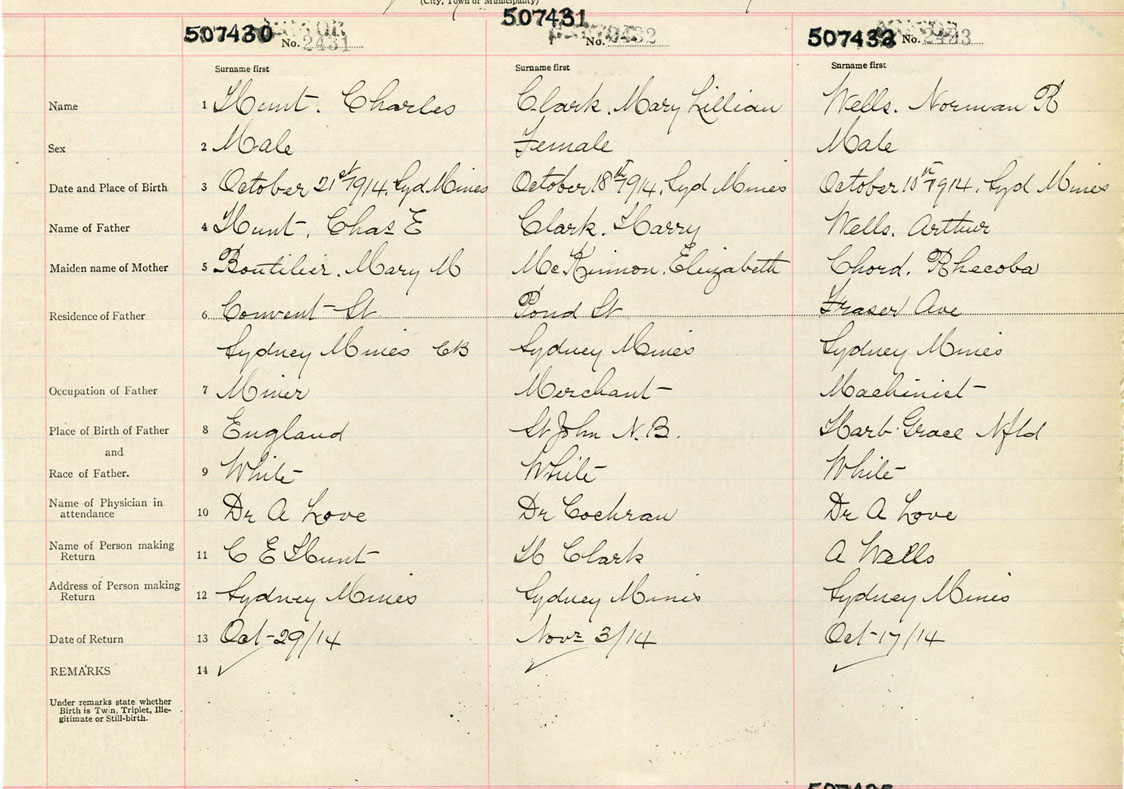 (City, Town or Municipality)
507430 No. 2431 507431 No. 2432 507433 No. 2433
Surname first Surname first Surname first
Name 1 Hunt. Charles Clark. Mary Lillian Wells. Norman R
Sex 2 Male Female Male
Date and Place of Birth 3 October 21st 1914, Syd Mines October 18th 1914, Syd Mines October 10th 1914, Syd Mines
Name of Father 4 Hunt, Chas E Clark. Harry Wells. Arthur
Maiden name of Mother 5 Boutilier. Mary M McKinnon. Elizabeth Chord. Rhecoba
Residence of Father 6 Convent St Pond St Fraser Ave
Sydney Mines CB Sydney Mines Sydney Mines
Occupation of Father 7 Miner Merchant Machinist
Place of Birth of Father 8 England St John N.B. Harb Grace Nfld
and
Race of Father. 9 White White White
Name of Physician in
attendance 10 Dr A Love Dr Cochran Dr A Love
Name of Person making
Return 11 C E Hunt H Clark A Wells
Address of Person making
Return 12 Sydney Mines Sydney Mines Sydney Mines
Date of Return 13 Oct-29/14 Novr 3/14 Oct-17/14
REMARKS 14
Under remarks state whether
Birth is Twin, Triplet, Ille-
gitimate or Still-birth.